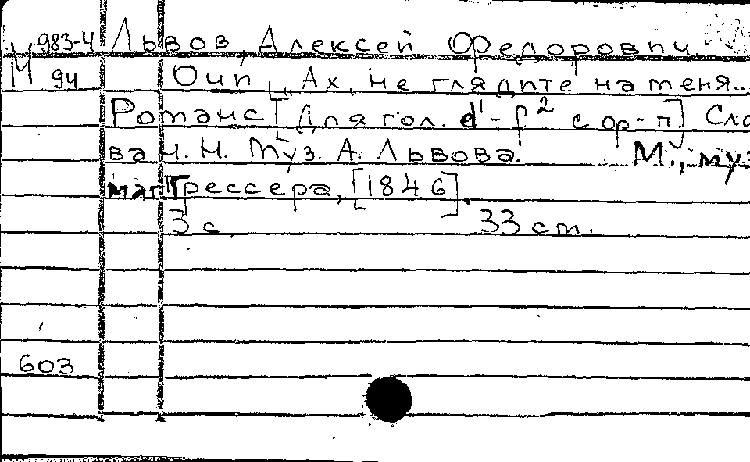 М 983-4 Львов, Алексей Федорович.
М 94 Оип. Ах, не глядите на меня...
Романс [Для гол. d¹-f² с ор-п] Сло
ва Н. Н. Муз. А. Львова. М., муз
маг. Грессера, [1846].
3 с. 33 см.
603